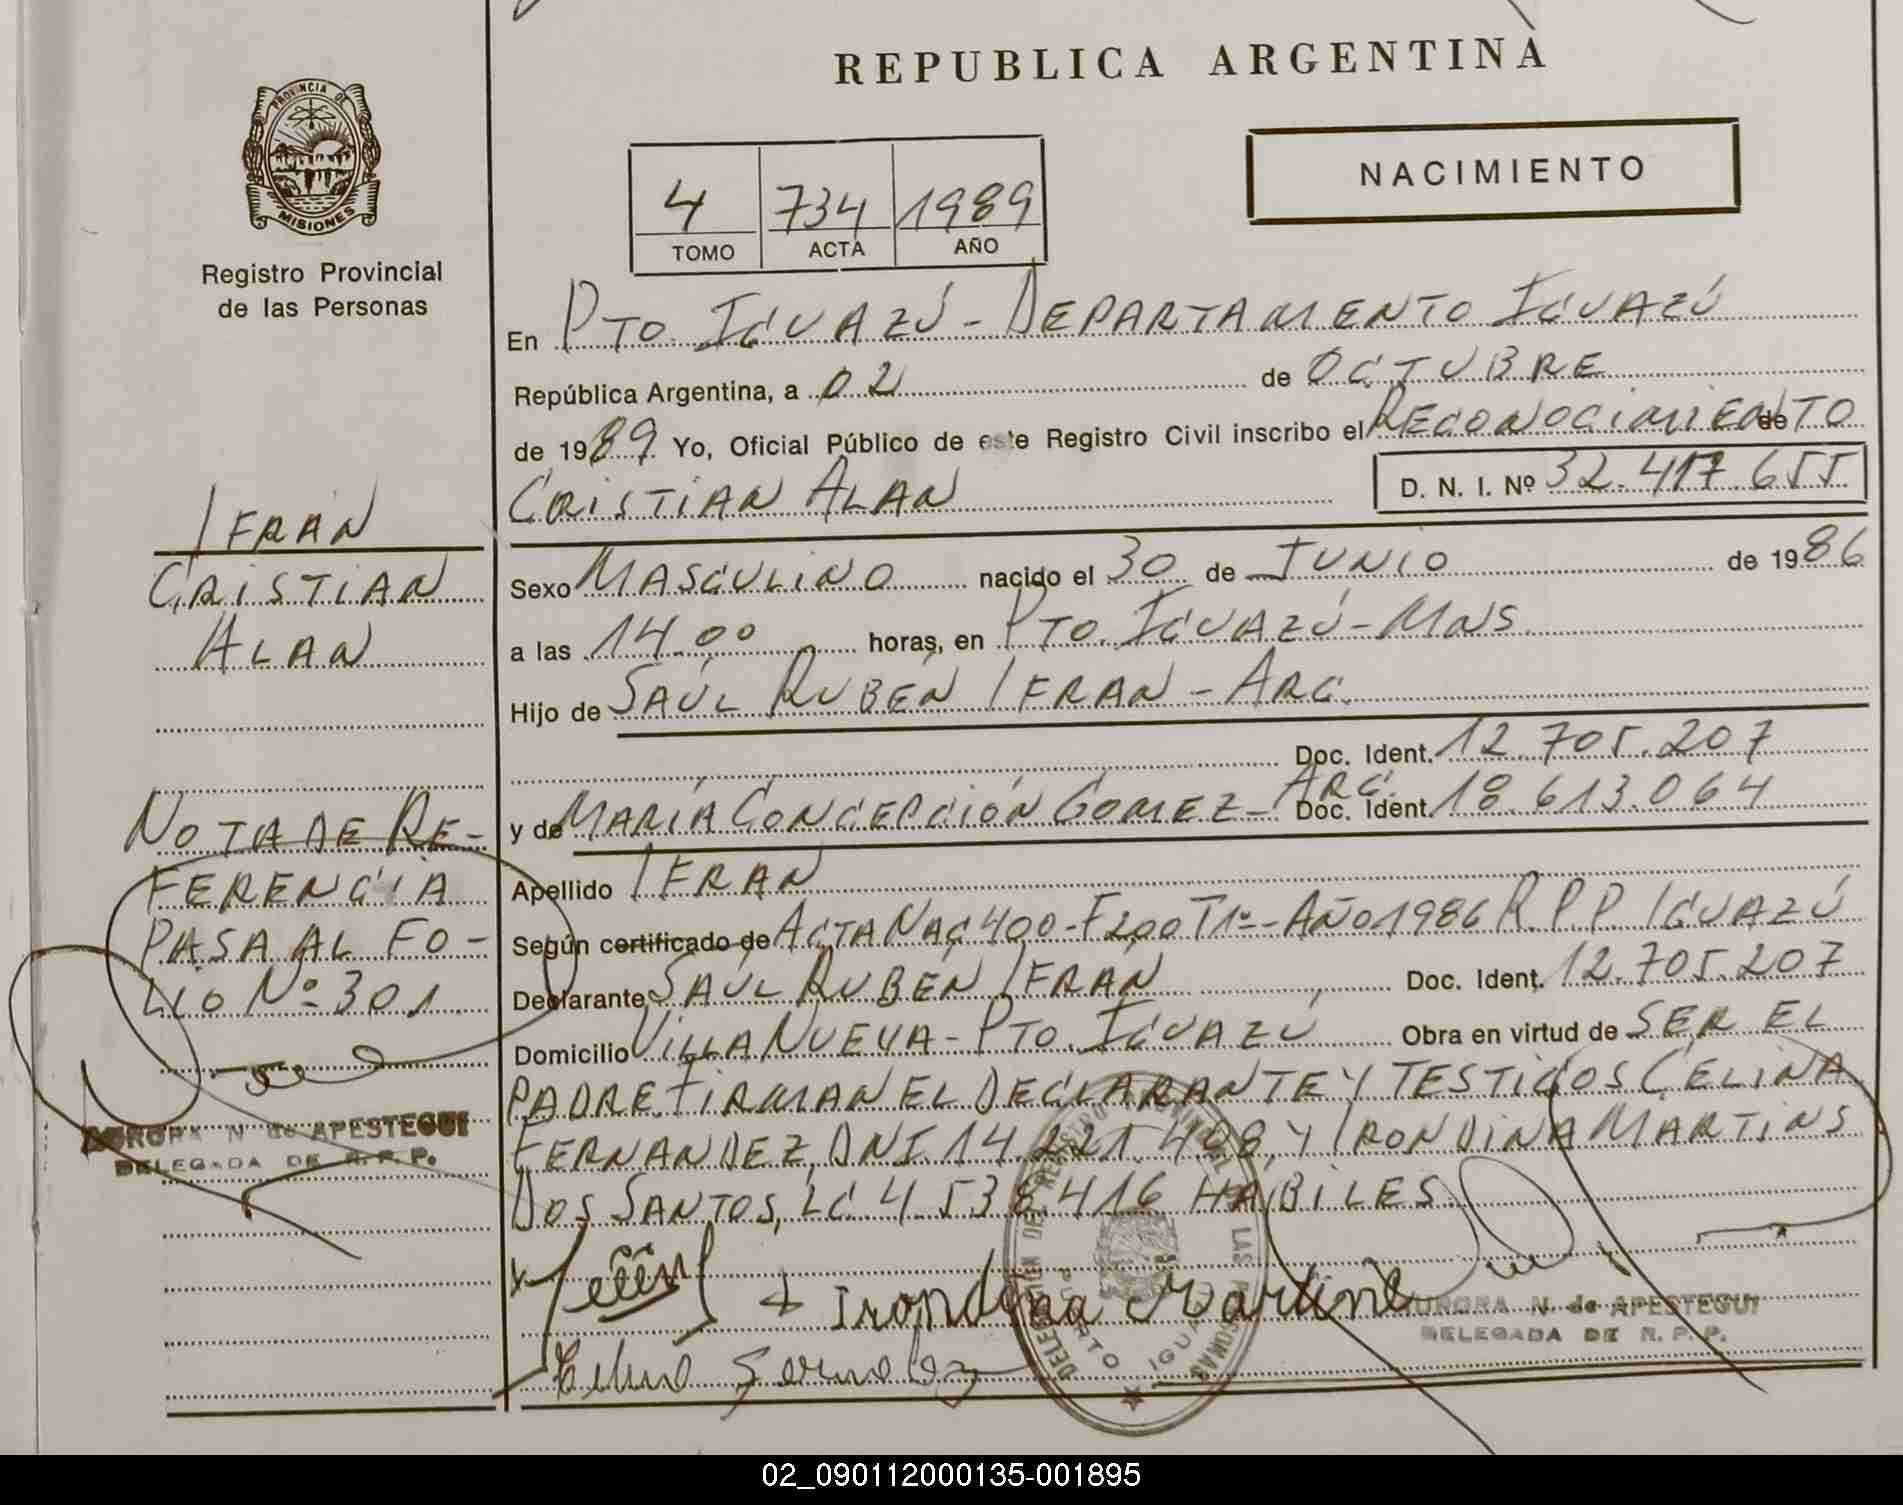 REPUBLICA ARGENTINA
PROVINCIA DE
MISIONES
Registro Provincial
de las Personas
NACIMIENTO
4 734 1989
TOMO ACTA AÑO
En PTO. IGUAZÚ - DEPARTAMENTO IGUAZÚ
República Argentina, a 02 de OCTUBRE
de 1989 Yo, Oficial Público de este Registro Civil inscribo el RECONOCIMIENTO de
CRISTIAN ALAN D. N. I. Nº 32.417.655
Sexo MASCULINO nacido el 30 de JUNIO de 1986
a las 14.00 horas, en PTO. IGUAZÚ - MNS.
Hijo de SAÚL RUBÉN IFRAN - ARG.
Doc. Ident. 12.705.207
y de MARÍA CONCEPCIÓN GOMEZ - ARG. Doc. Ident. 18.613.064
Apellido IFRAN
Según certificado de ACTA NAC 400 - F 200 Tº 1º - AÑO 1986 R.P.P. IGUAZÚ
Declarante SAÚL RUBÉN IFRÁN Doc. Ident. 12.705.207
Domicilio VILLA NUEVA - PTO. IGUAZÚ Obra en virtud de SER EL
PADRE. FIRMAN EL DECLARANTE Y TESTIGOS CELINA
FERNANDEZ, DNI 14.221.498, Y IRONDINA MARTINS
DOS SANTOS, LC 4.538.416 HÁBILES.
+ Irondina Martins
AURORA N. de APESTEGUI
DELEGADA DE R. P. P.
DELEGACIÓN DEL REGISTRO PROVINCIAL DE LAS PERSONAS
PUERTO IGUAZU
IFRÁN
CRISTIAN
ALAN
NOTA DE RE-
FERENCIA
PASA AL FO-
LIO Nº 301.
AURORA N. de APESTEGUI
DELEGADA DE R. P. P.
02_090112000135-001895